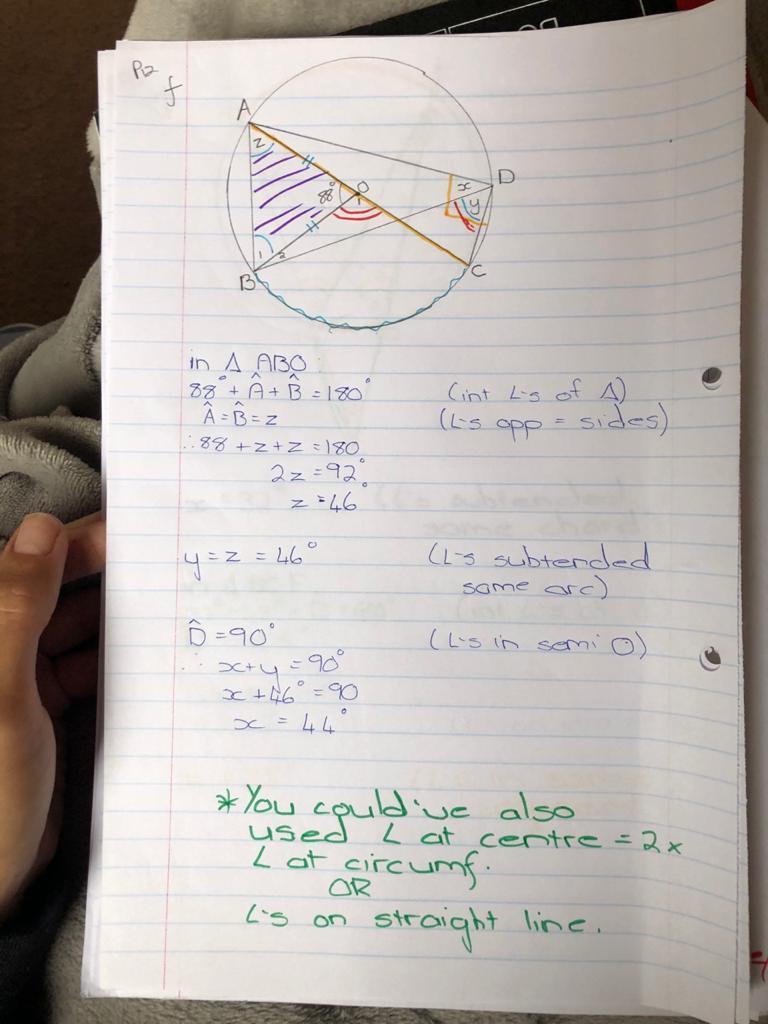 P12
f
A
z
88°
O
1
x
D
y
1 2
B
C
in Δ ABO:
88° + Â + B̂ = 180° (int ∠'s of Δ)
Â = B̂ = z (∠'s opp = sides)
∴ 88 + z + z = 180
2z = 92°
z = 46
y = z = 46° (∠'s subtended
same arc)
D̂ = 90° (∠'s in semi ⊙)
∴ x + y = 90°
x + 46° = 90
x = 44°
*You could've also
used ∠ at centre = 2x
∠ at circumf.
OR
∠'s on straight line.